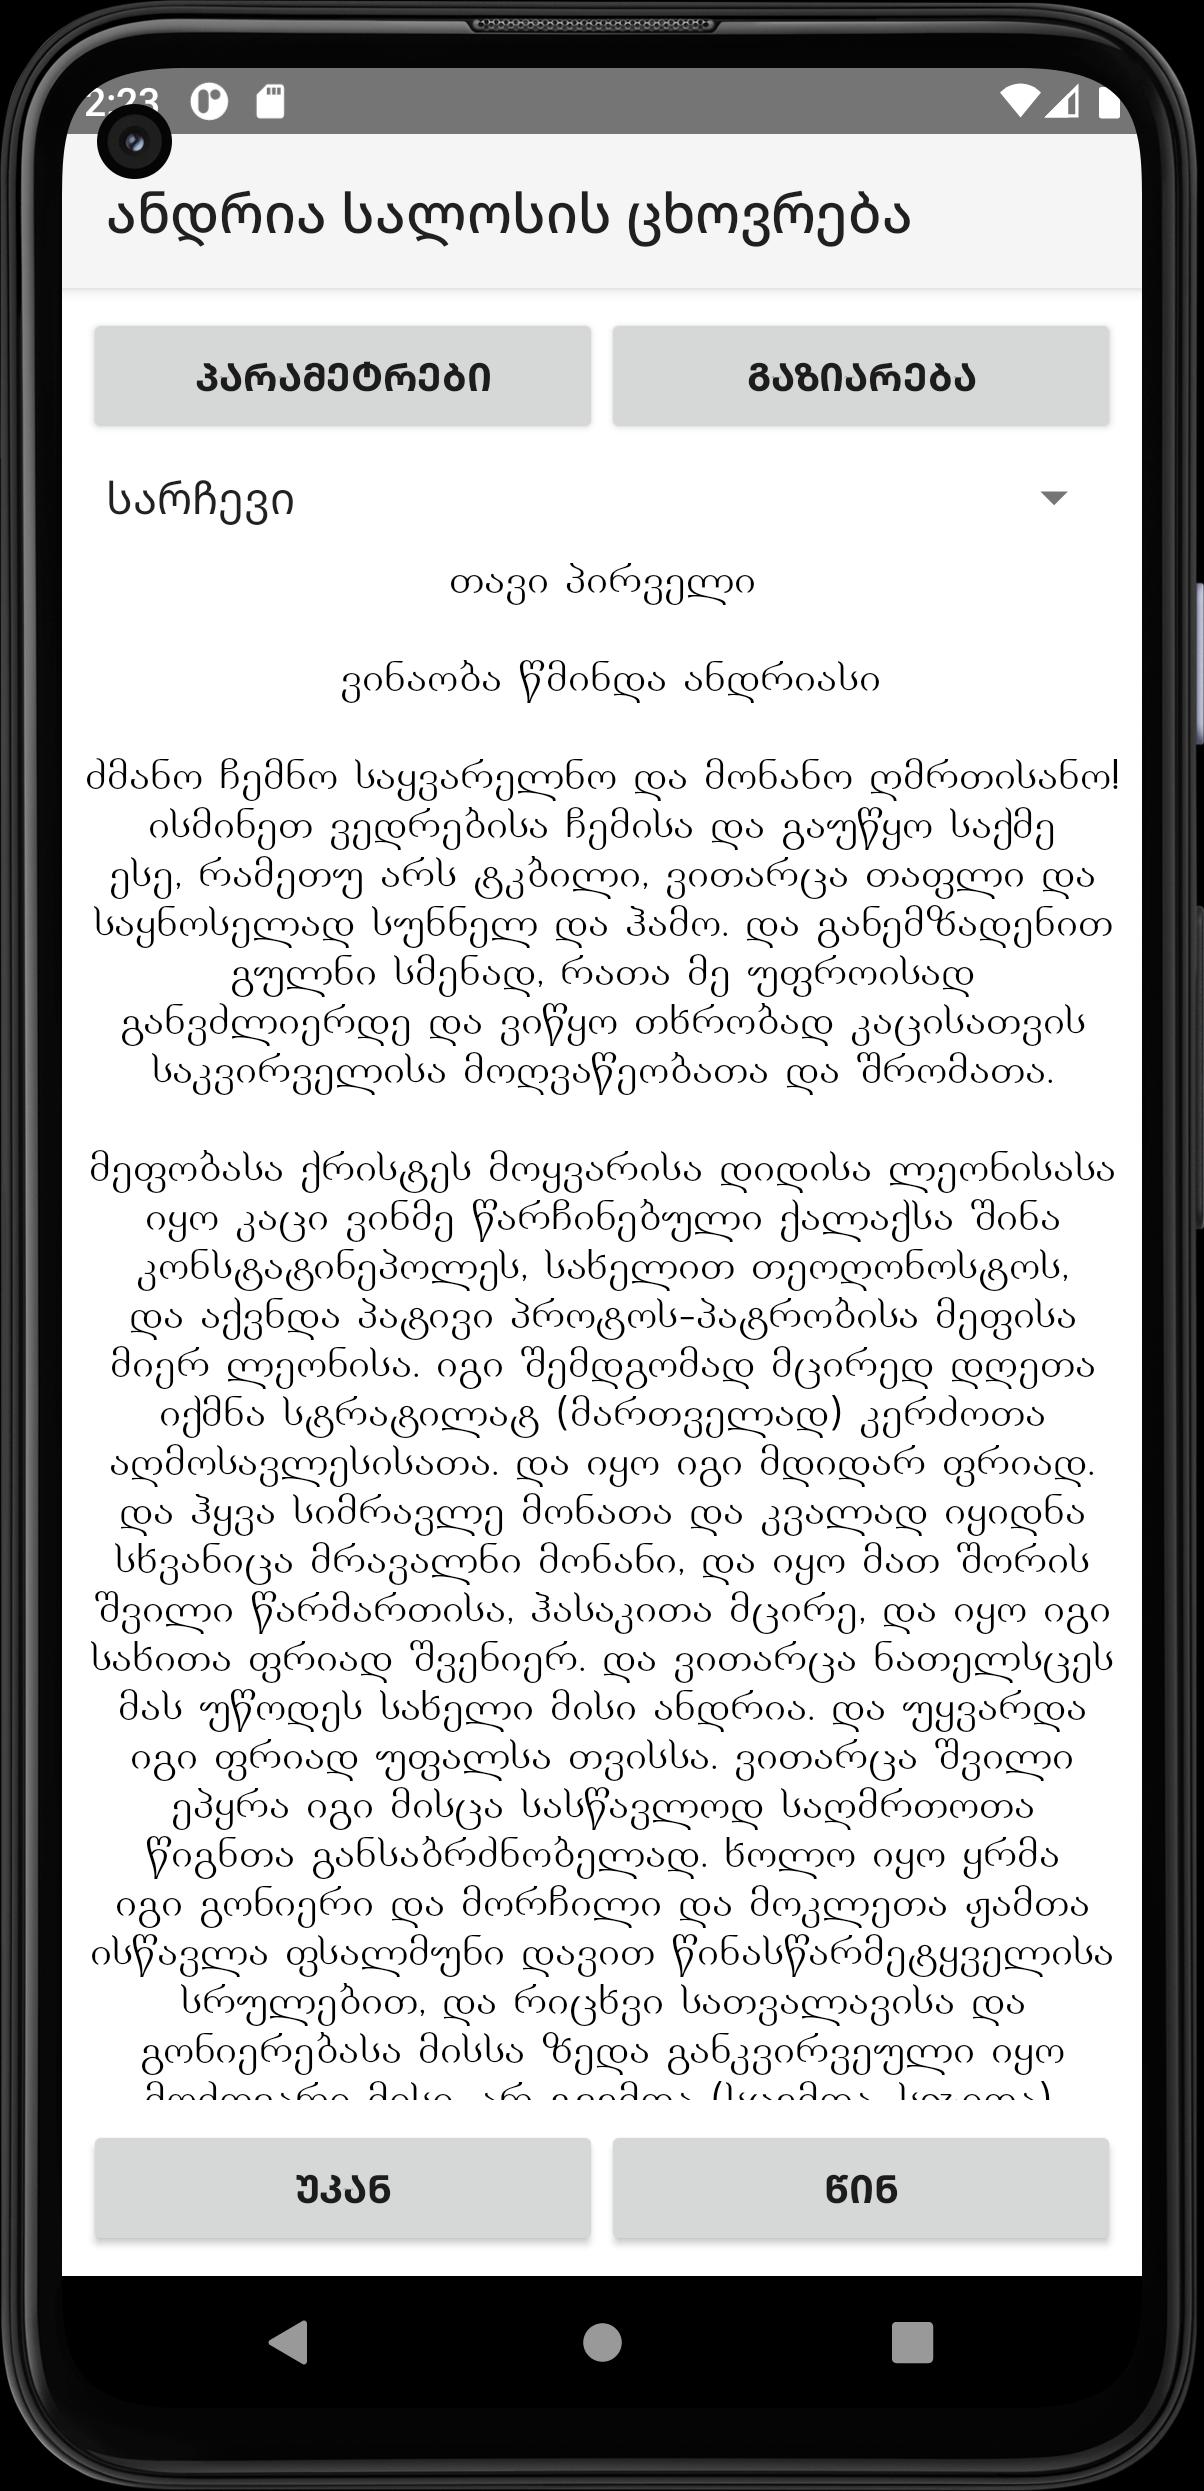 2:23
ანდრია სალოსის ცხოვრება
ᲞᲐᲠᲐᲛᲔᲢᲠᲔᲑᲘ
ᲒᲐᲖᲘᲐᲠᲔᲑᲐ
სარჩევი
თავი პირველი
ვინაობა წმინდა ანდრიასი
ძმანო ჩემნო საყვარელნო და მონანო ღმრთისანო!
ისმინეთ ვედრებისა ჩემისა და გაუწყო საქმე
ესე, რამეთუ არს ტკბილი, ვითარცა თაფლი და
საყნოსელად სუნნელ და ჰამო. და განემზადენით
გულნი სმენად, რათა მე უფროისად
განვძლიერდე და ვიწყო თხრობად კაცისათვის
საკვირველისა მოღვაწეობათა და შრომათა.
მეფობასა ქრისტეს მოყვარისა დიდისა ლეონისასა
იყო კაცი ვინმე წარჩინებული ქალაქსა შინა
კონსტატინეპოლეს, სახელით თეოღონოსტოს,
და აქვნდა პატივი პროტოს-პატრობისა მეფისა
მიერ ლეონისა. იგი შემდგომად მცირედ დღეთა
იქმნა სტრატილატ (მართველად) კერძოთა
აღმოსავლესისათა. და იყო იგი მდიდარ ფრიად.
და ჰყვა სიმრავლე მონათა და კვალად იყიდნა
სხვანიცა მრავალნი მონანი, და იყო მათ შორის
შვილი წარმართისა, ჰასაკითა მცირე, და იყო იგი
სახითა ფრიად შვენიერ. და ვითარცა ნათელსცეს
მას უწოდეს სახელი მისი ანდრია. და უყვარდა
იგი ფრიად უფალსა თვისსა. ვითარცა შვილი
ეპყრა იგი მისცა სასწავლოდ საღმრთოთა
წიგნთა განსაბრძნობელად. ხოლო იყო ყრმა
იგი გონიერი და მორჩილი და მოკლეთა ჟამთა
ისწავლა ფსალმუნი დავით წინასწარმეტყველისა
სრულებით, და რიცხვი სათვალავისა და
გონიერებასა მისსა ზედა განკვირვეული იყო
ᲣᲙᲐᲜ
ᲬᲘᲜ